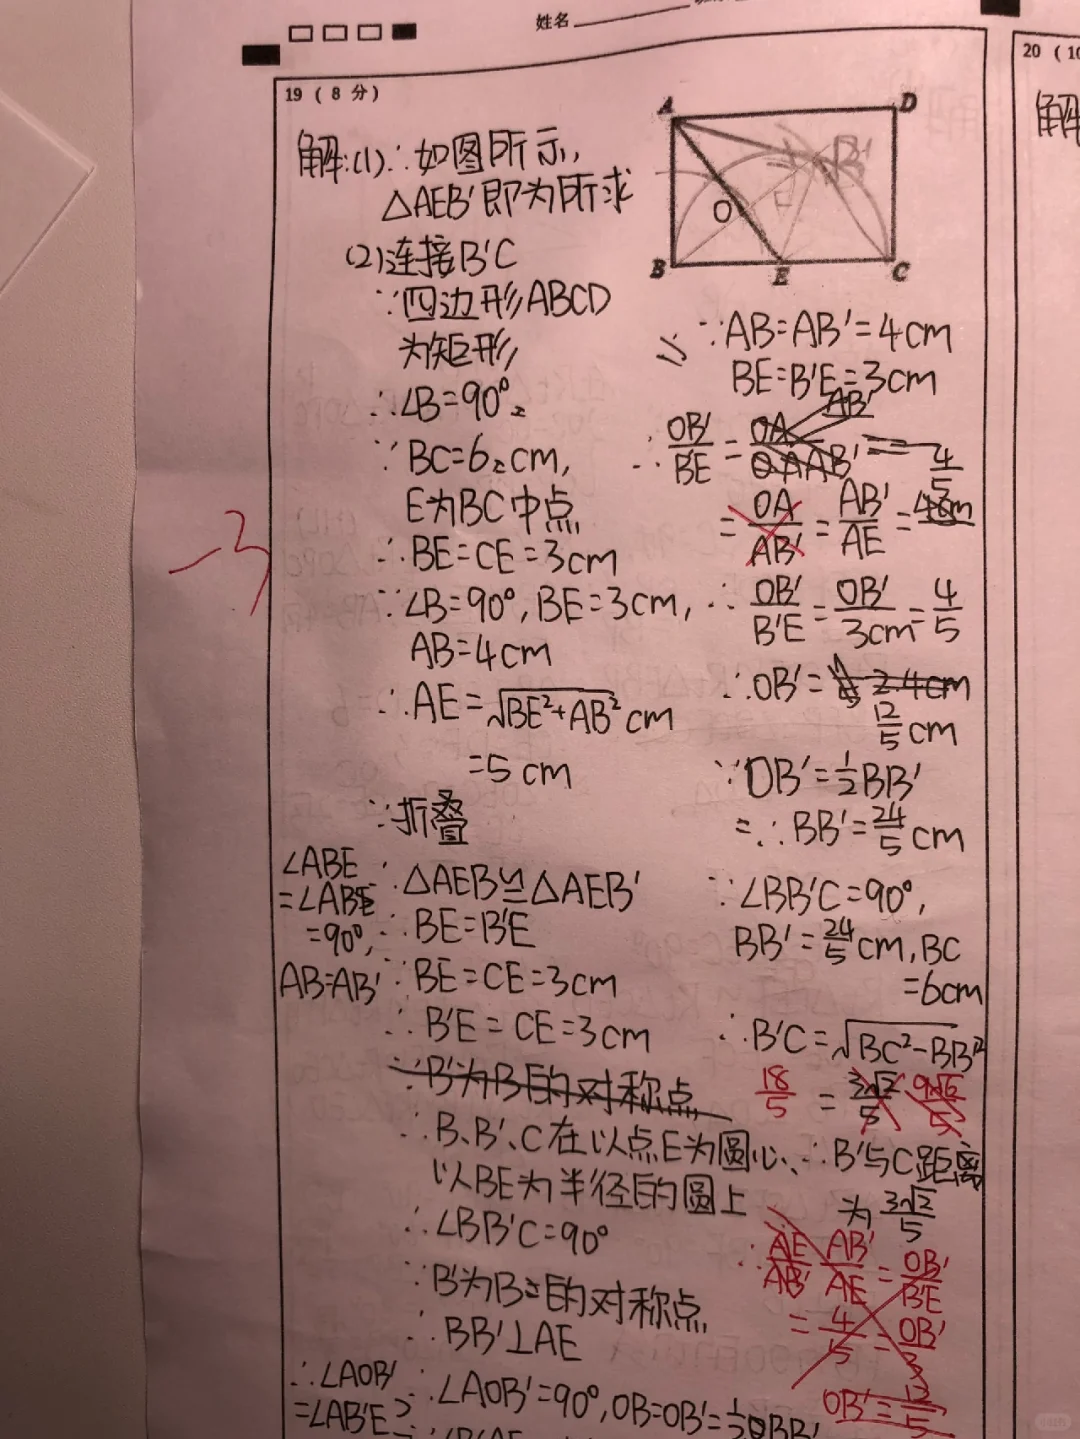 姓名
19 ( 8 分)
20 ( 10
解:(1)∴如图所示,
△AEB′即为所求
(2)连接B′C
∵四边形ABCD
为矩形,
∴∠B=90°
∵BC=6cm,
E为BC中点
∴BE=CE=3cm
∵∠B=90°,BE=3cm,
AB=4cm
∴AE=√BE²+AB² cm
=5 cm
∵折叠
∴△AEB≌△AEB′
∠ABE
=90°,
AB=AB′
∴BE=B′E
∵BE=CE=3cm
∴B′E=CE=3cm
∵B′为B的对称点
∴B、B′、C在以点E为圆心、
以BE为半径的圆上
∴∠BB′C=90°
∵B′为B的对称点
∴BB′⊥AE
∴∠AOB′
=∠AB′E
∴∠AOB′=90°,OB=OB′=1/2BB′
-3
A
D
B′
O
B
E
C
∵AB=AB′=4cm
BE=B′E=3cm
∴OB′/BE=OA
AB′
4/5
=OA/AB′=AB′/AE=
∴OB′/B′E=OB′/3cm=4/5
∴OB′=2.4cm
12/5 cm
∵OB′=1/2BB′
=∴BB′=24/5 cm
∵∠BB′C=90°,
BB′=24/5 cm,BC
=6cm
∴B′C=√BC²-BB′²
18/5 =3√2/5
∴B′与C距离
为3√2/5
AE/AB′ AB′/AE=OB′/BE
=4/5=OB′/3
OB′=12/5
解